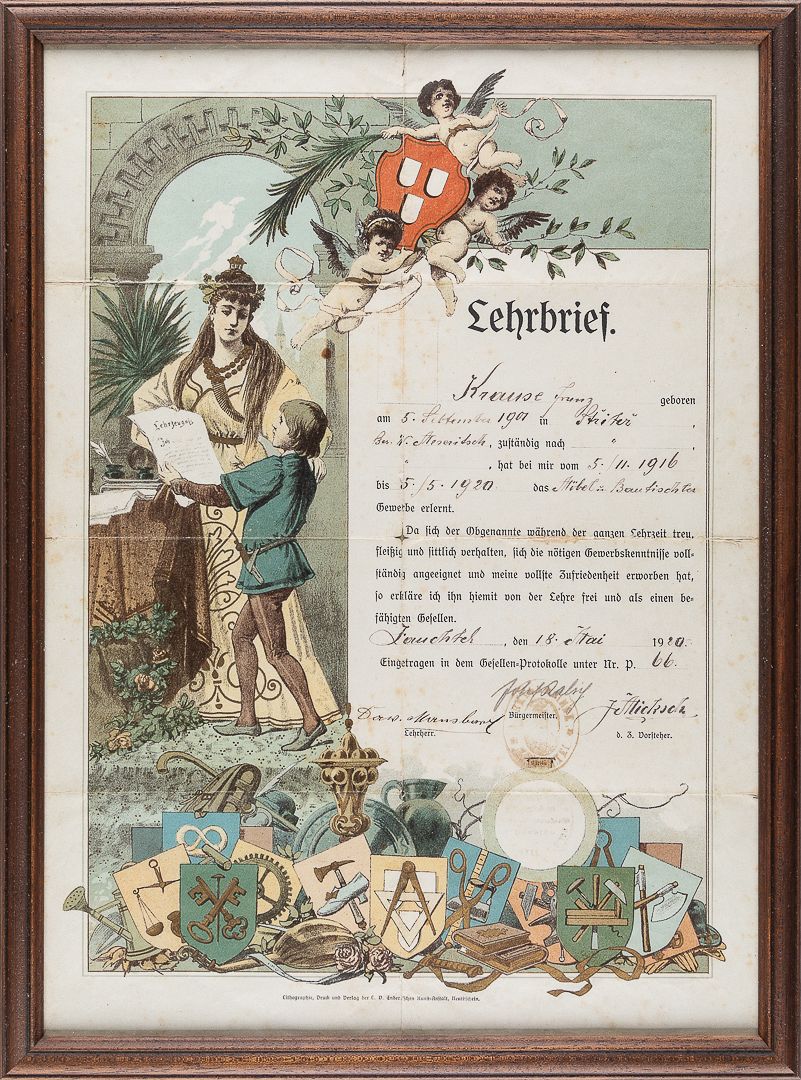 Lehrbrief.
Lehrzeugnis
Krause Franz geboren
am 5. September 1901 in
Bez. , zuständig nach "
" , hat bei mir vom 5./11. 1916
bis 5./5. 1920. das Möbel u. Bautischler
Gewerbe erlernt.
Da sich der Obgenannte während der ganzen Lehrzeit treu,
fleißig und sittlich verhalten, sich die nötigen Gewerbskenntnisse voll-
ständig angeeignet und meine vollste Zufriedenheit erworben hat,
so erkläre ich ihn hiemit von der Lehre frei und als einen be-
fähigten Gesellen.
Zauchtel, den 18. Mai 1920.
Eingetragen in dem Gesellen-Protokolle unter Nr. P. 66.
Lehrherr.
Bürgermeister.
d. Z. Vorsteher.
Lithographie, Druck und Verlag der L. V. Enders'schen Kunst-Anstalt, Neutitschein.